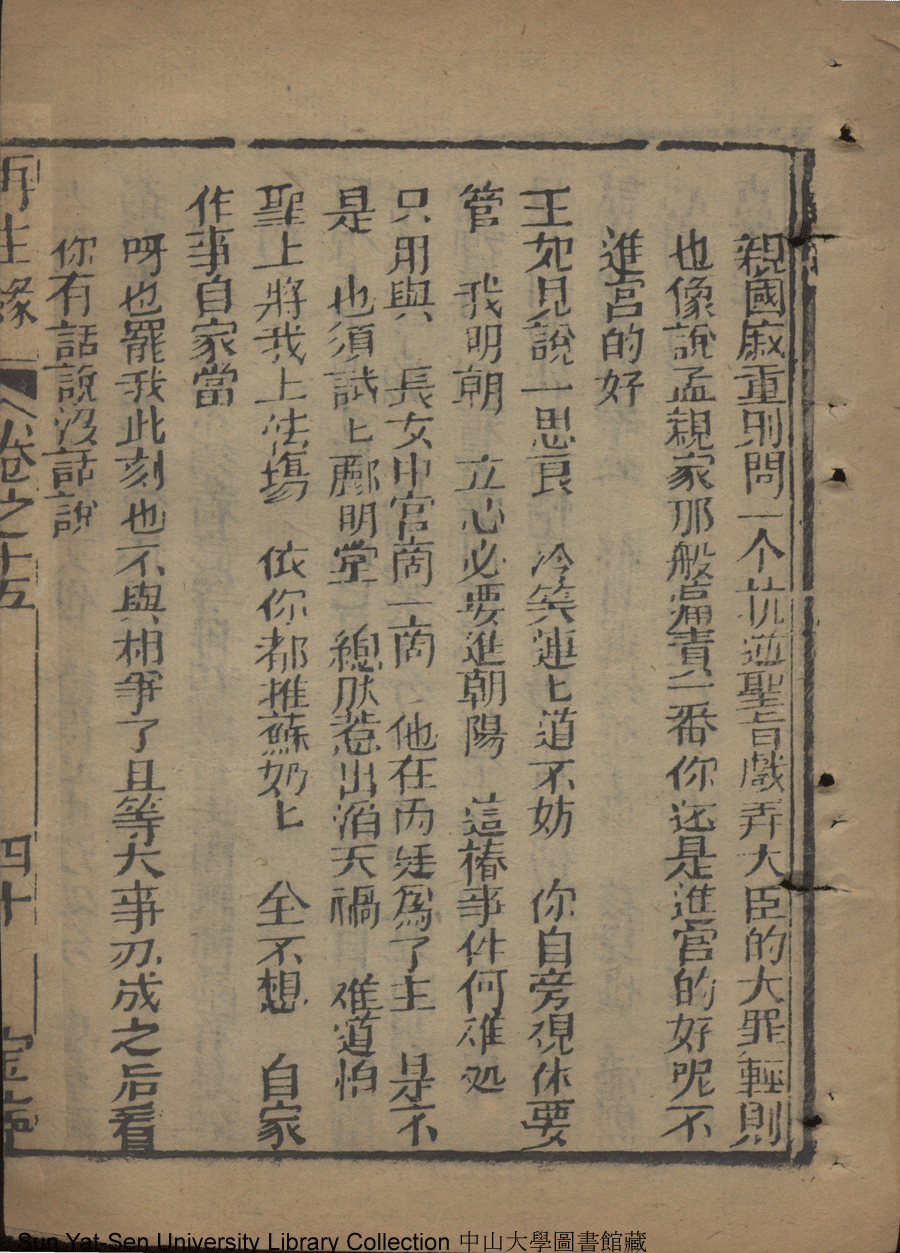 親國戚重則問一个抗違聖旨戲弄大臣的大罪輕則
也像說孟親家那般痛責一番你还是進宮的好呢不
進宮的好
王妃見說一思良 冷笑連匕道不妨 你自旁視休要
管 我明朝 立心必要進朝陽 這椿事件何难処
只用與 長女中官商一商 他在兩廷為了主 是不
是 也須試上酈明堂 總肰惹出滔天禍 难道怕
聖上將我上法場 依你都推蘇奶匕 全不想 自家
作事自家當
呀也罷我此刻也不與相爭了且等大事办成之后看
你有話說沒話說
再生緣 卷之十五 四十
Sun Yat-Sen University Library Collection 中山大學圖書館藏